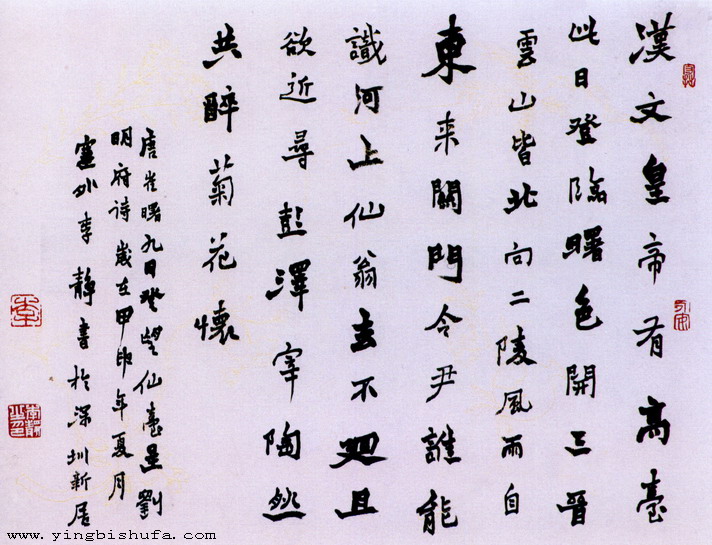 漢文皇帝有高臺
此日登臨曙色開三晉
雲山皆北向二陵風雨自
東来關門令尹誰能
識河上仙翁去不廻且
欲近尋彭澤宰陶然
共醉菊花懷
唐崔曙九日登望仙臺呈劉
明府诗歲在甲申年夏月
外李静書於深圳新居
www.yingbishufa.com